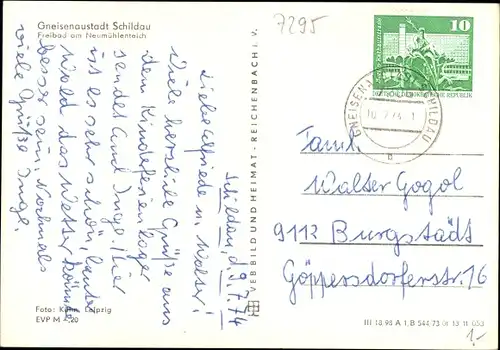 Gneisenaustadt Schildau
Freibad am Neumühlenteich
7295
10
DEUTSCHE DEMOKRATISCHE REPUBLIK
GNEISENAUSTADT SCHILDAU
Schildau, d. 9.7.74
Liebe Elfriede u. Walter!
Viele herzliche Grüße aus
dem Kinderferienlager
sendet Euch Inge. Hier
ist es sehr schön, bloß
das Wetter könnte
besser sein. Nochmals
viele Grüße Inge.
VEB BILD UND HEIMAT · REICHENBACH i. V.
Famil.
Walter Gogol
9112 Burgstädt
Göppersdorferstr. 16
Foto: Kühn, Leipzig
EVP M -,20
III 18 98 A 1 B 544/73 01 13 11 053
1,-